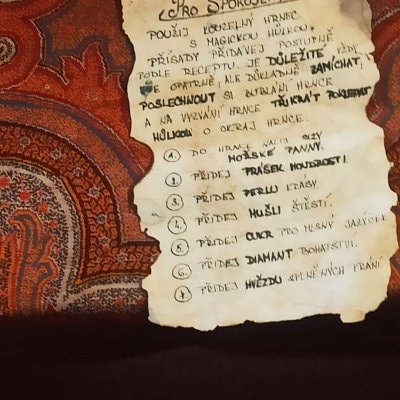 (PRO SPOKOJE
POUŽIJ KOUZELNÝ HRNEC
S MAGICKOU HŮLKOU,
PŘÍSADY PŘIDÁVEJ POSTUPNĚ
PODLE RECEPTU, JE DŮLEŽITÉ VŽDY
VŠE OPATRNĚ, ALE DŮKLADNĚ ZAMÍCHAT,
POSLECHNOUT SI BUBLÁNÍ HRNCE
A NA VYZVÁNÍ HRNCE TŘIKRÁT POKLEPAT
HŮLKOU O OKRAJ HRNCE.
1. DO HRNCE NALIJ SLZY
MOŘSKÉ PANNY.
2. PŘIDEJ PRÁŠEK MOUDROSTI.
3. PŘIDEJ PERLU KRÁSY.
4. PŘIDEJ MUŠLI ŠTĚSTÍ.
5. PŘIDEJ CUKR PRO MLSNÝ JAZÝČEK
6. PŘIDEJ DIAMANT BOHATSTVÍ.
7. PŘIDEJ HVĚZDU SPLNĚNÝCH PŘÁNÍ